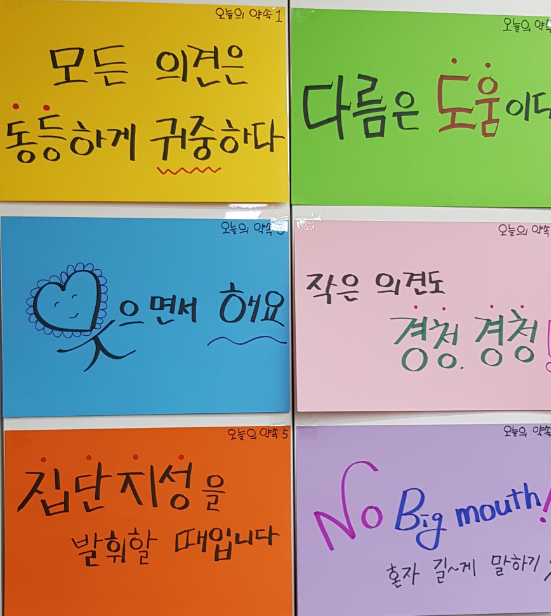 오늘의 약속 1
모든 의견은
동등하게 귀중하다
오늘의 약속
다름은 도움이다
오늘의 약속 3
웃으면서 해요
오늘의 약속
작은 의견도
경청, 경청!
오늘의 약속 5
집단지성을
발휘할 때입니다
오늘의 약속
No Big mouth!
혼자 길~게 말하기